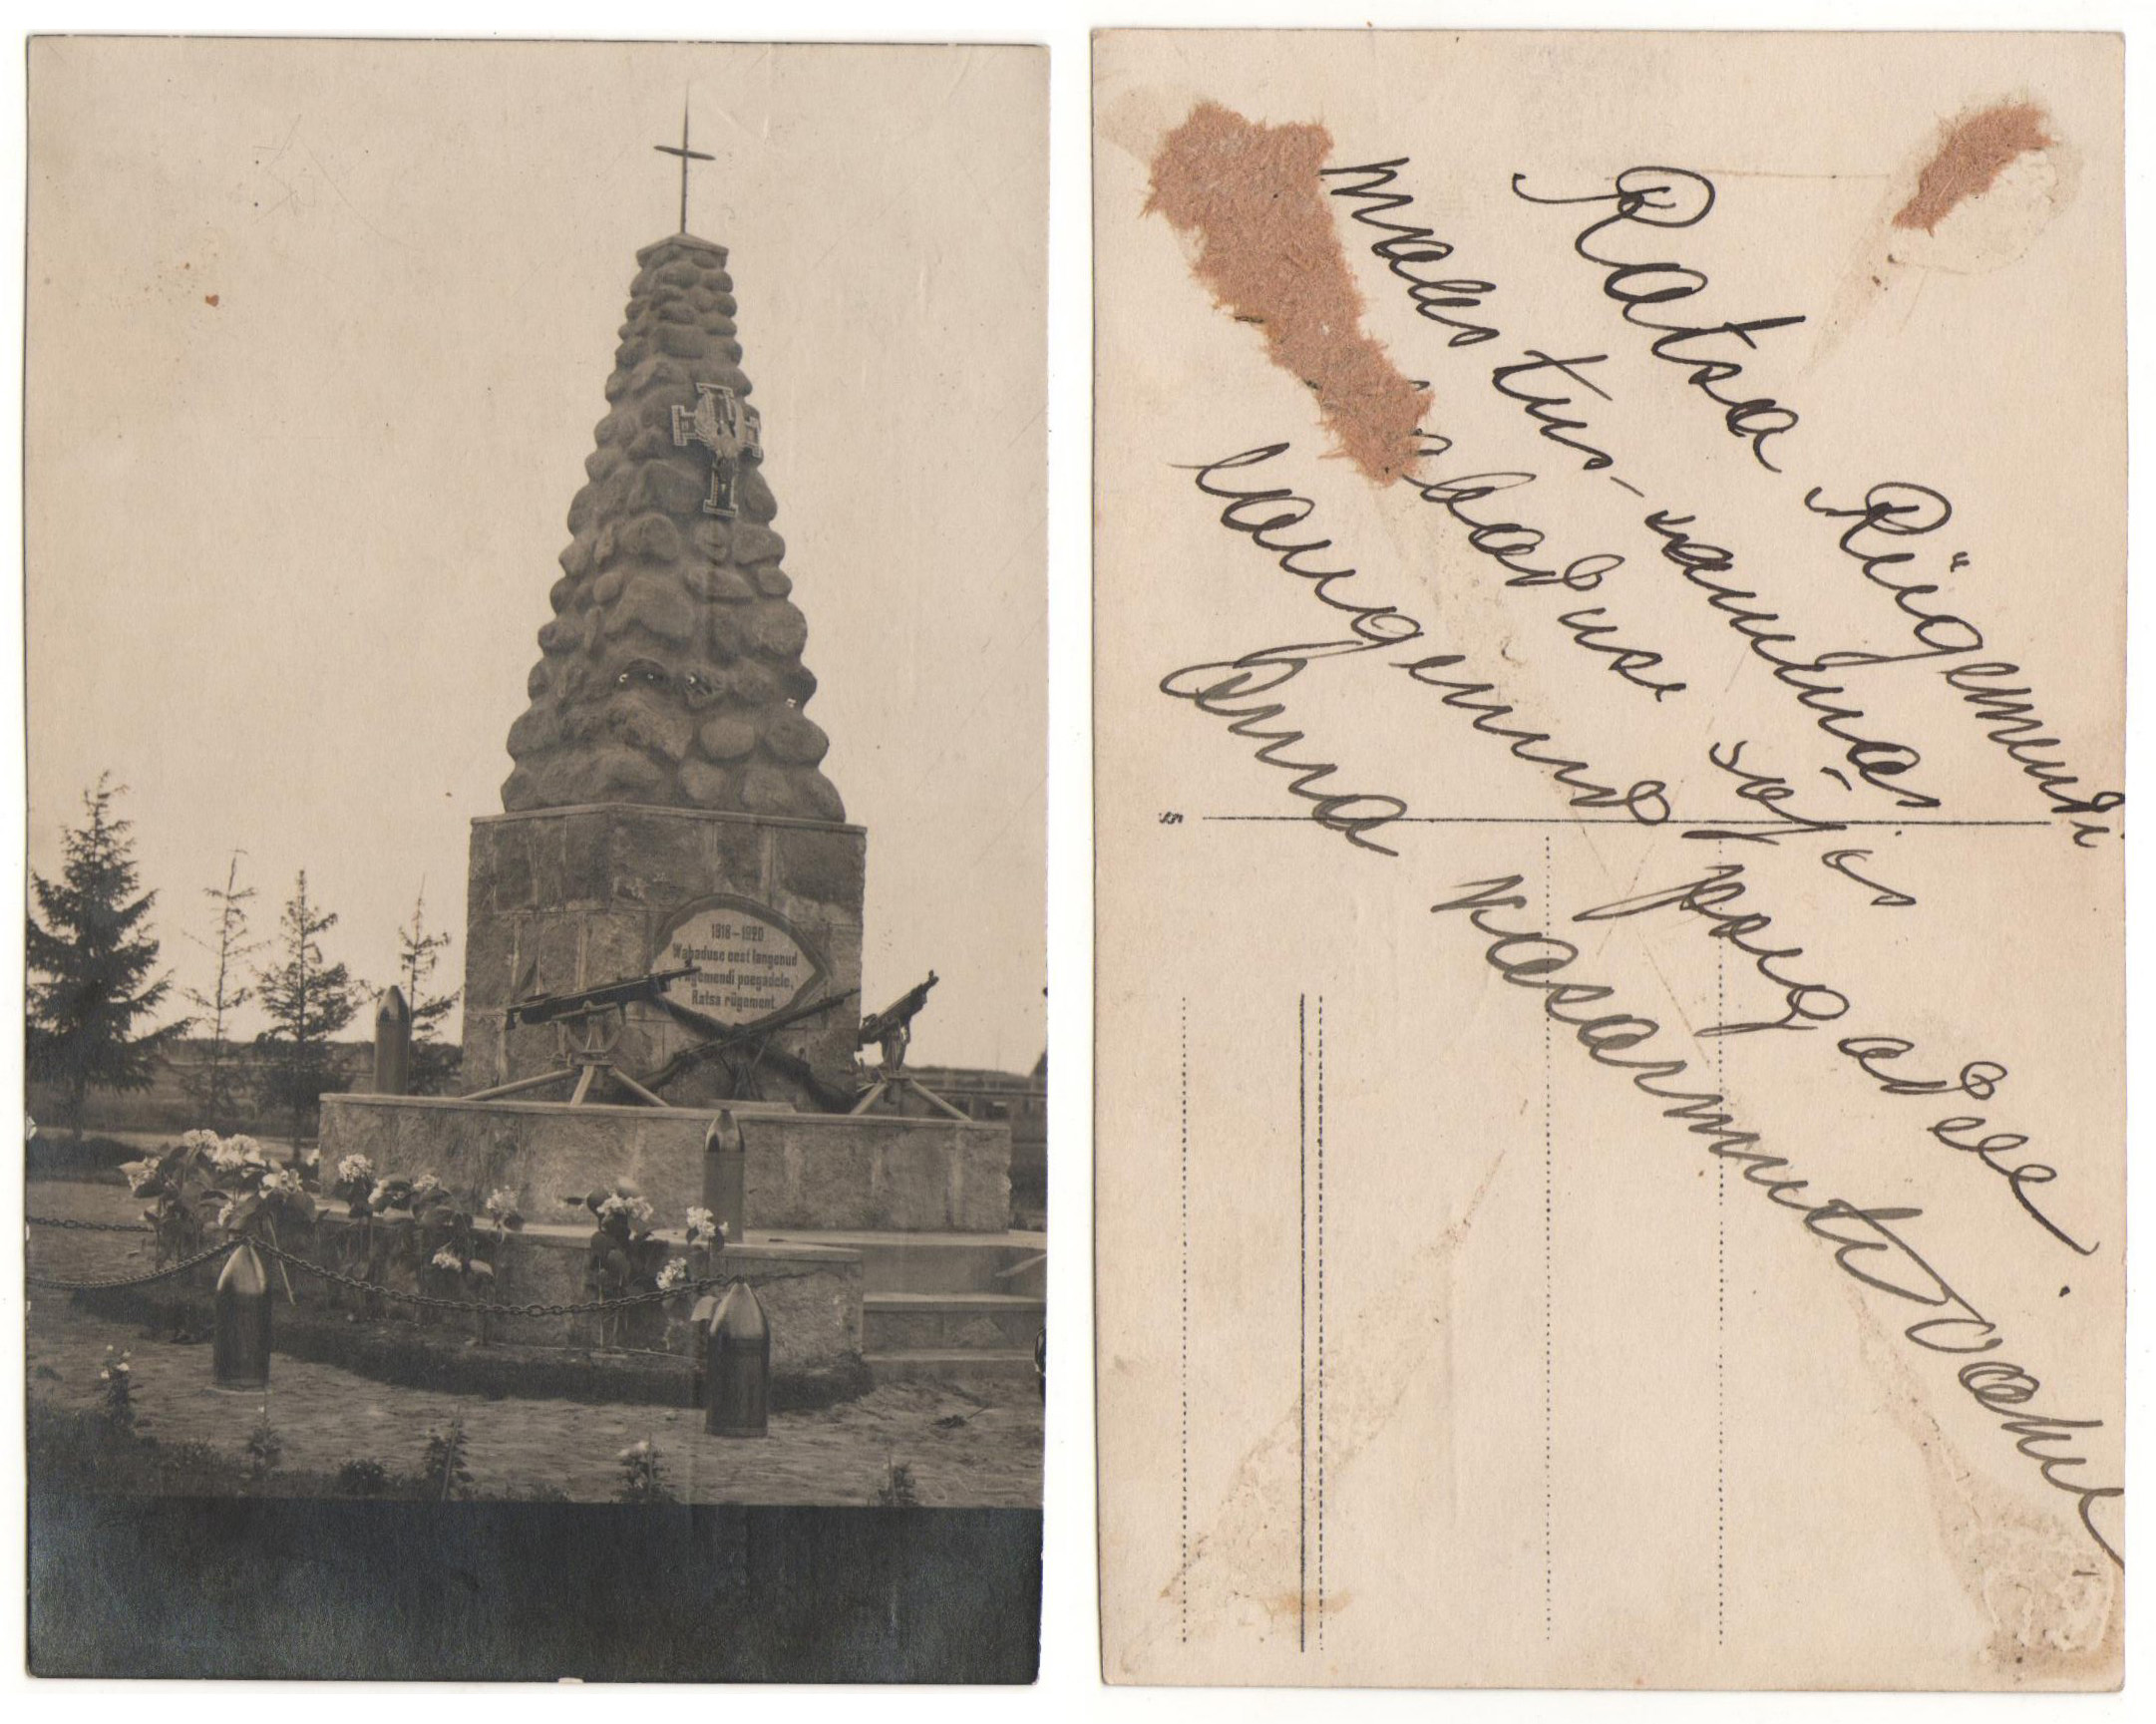 1918–1920
Wabaduse eest langenud
rügemendi poegadele,
Ratsa rügement
Ratsa Rügemendi
maelestus-sammas
wabaduse sõjas
langenud poegadele
Oma kasarmute